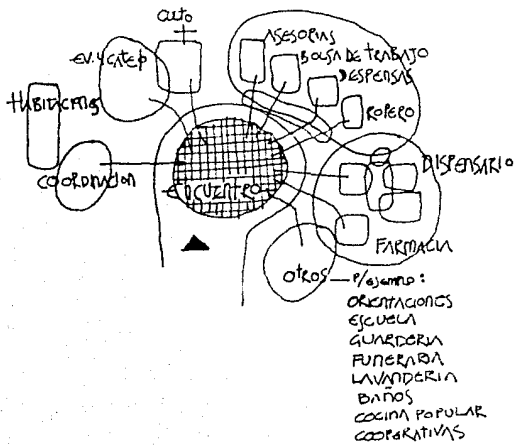 culto
EV. Y CATEQ
HABITACIONES
COORDINACION
ENCUENTRO
ASESORIAS
BOLSA DE TRABAJO
DESPENSAS
ROPERO
DISPENSARIO
FARMACIA
OTROS — P/EJEMPLO:
ORIENTACIONES
ESCUELA
GUARDERIA
FUNERARIA
LAVANDERIA
BAÑOS
COCINA POPULAR
COOPERATIVAS